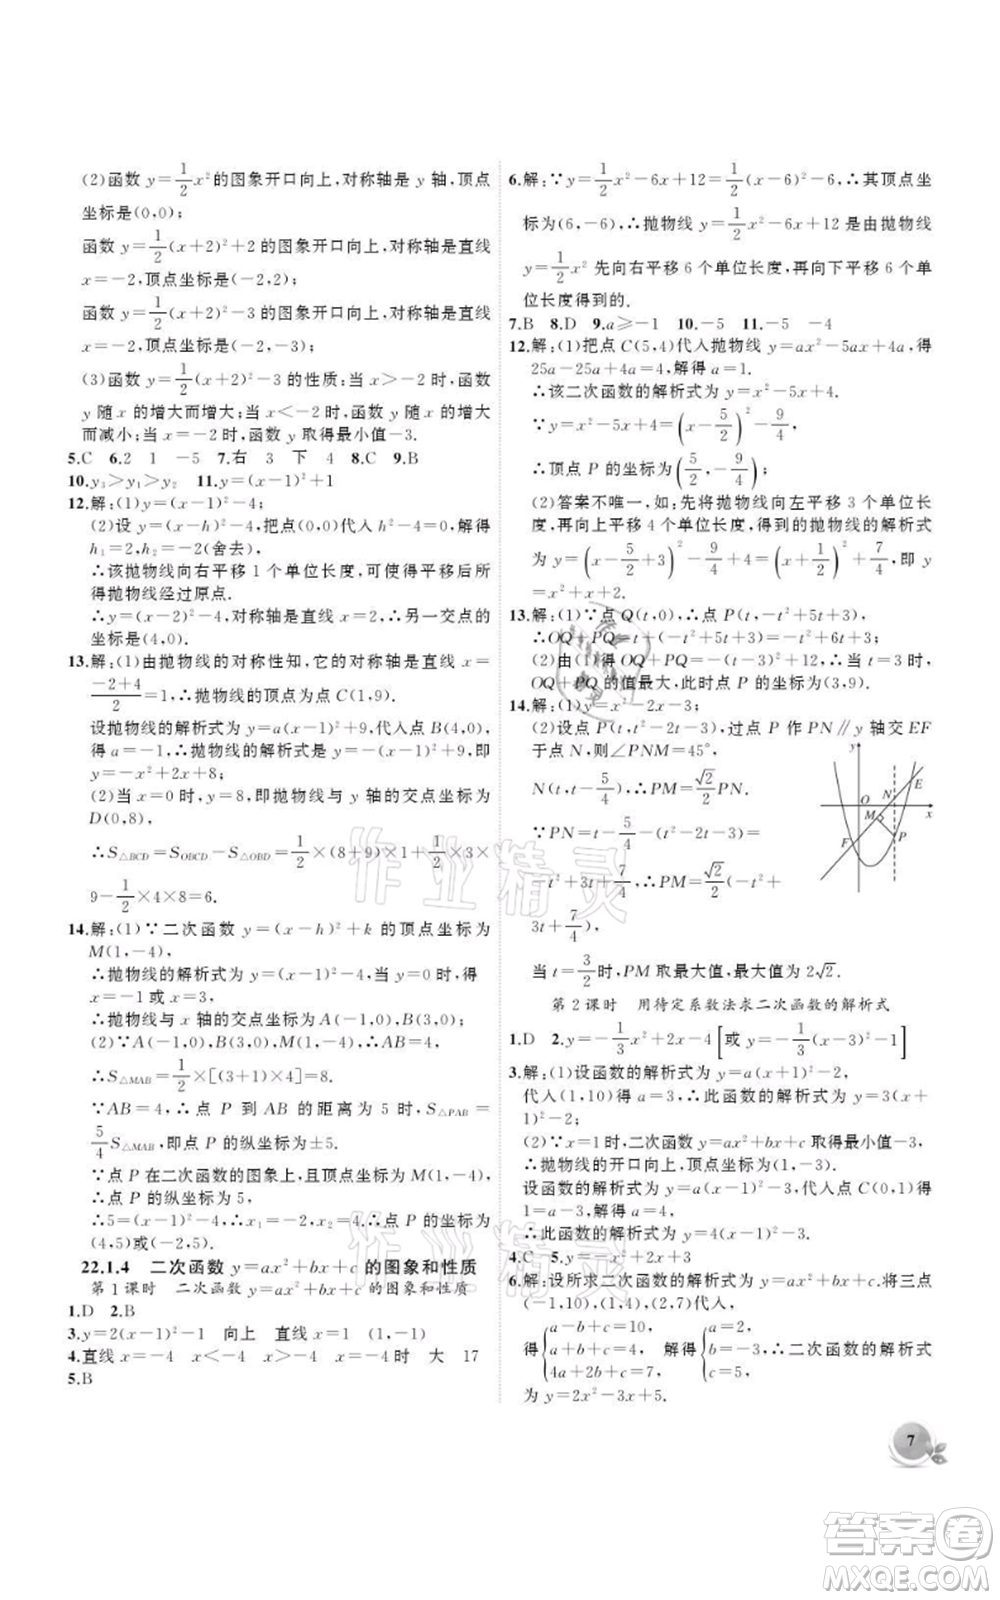 (2)函数 y=1/2x²的图象开口向上,对称轴是 y 轴,顶点
坐标是(0,0);
函数 y=1/2(x+2)²+2 的图象开口向上,对称轴是直线
x=-2,顶点坐标是(-2,2);
函数 y=1/2(x+2)²-3 的图象开口向上,对称轴是直线
x=-2,顶点坐标是(-2,-3);
(3)函数 y=1/2(x+2)²-3 的性质:当 x>-2 时,函数
y 随 x 的增大而增大;当 x<-2 时,函数 y 随 x 的增大
而减小;当 x=-2 时,函数 y 取得最小值-3.
5.C 6.2 1 -5 7.右 3 下 4 8.C 9.B
10.y₃>y₁>y₂ 11.y=(x-1)²+1
12.解:(1)y=(x-1)²-4;
(2)设 y=(x-h)²-4,把点(0,0)代入 h²-4=0,解得
h₁=2,h₂=-2(舍去),
∴该抛物线向右平移 1 个单位长度,可使得平移后所
得抛物线经过原点.
∴y=(x-2)²-4,对称轴是直线 x=2,∴另一交点的
坐标是(4,0).
13.解:(1)由抛物线的对称性知,它的对称轴是直线 x=
(-2+4)/2=1,∴抛物线的顶点为点 C(1,9).
设抛物线的解析式为 y=a(x-1)²+9,代入点 B(4,0),
得 a=-1,∴抛物线的解析式为 y=-(x-1)²+9,即
y=-x²+2x+8;
(2)当 x=0 时,y=8,即抛物线与 y 轴的交点坐标为
D(0,8),
∴S△BCD=SOBCD-S△OBD=1/2×(8+9)×1+1/2×3×
9-1/2×4×8=6.
14.解:(1)∵二次函数 y=(x-h)²+k 的顶点坐标为
M(1,-4),
∴抛物线的解析式为 y=(x-1)²-4,当 y=0 时,
x=-1 或 x=3,
∴抛物线与 x 轴的交点坐标为 A(-1,0),B(3,0);
(2)∵A(-1,0),B(3,0),M(1,-4),∴AB=4,
∴S△MAB=1/2×[3-(-1)]×4=8.
∵AB=4,∴点 P 到 AB 的距离为 5 时,S△PAB=
5/4S△MAB,即点 P 的纵坐标为±5.
∵点 P 在二次函数的图象上,且顶点坐标为 M(1,-4),
∴点 P 的纵坐标为 5,
∴5=(x-1)²-4,∴x₁=-2,x₂=4,∴点 P 的坐标为
(4,5)或(-2,5).
22.1.4 二次函数 y=ax²+bx+c 的图象和性质
第 1 课时 二次函数 y=ax²+bx+c 的图象和性质
1.D 2.B
3.y=2(x-1)²-1 向上 直线 x=1 (1,-1)
4.直线 x=-4 x<-4 x>-4 x=-4 时 大 17
5.B
6.解:∵y=1/2x²-6x+12=1/2(x-6)²-6,∴其顶点坐
标为(6,-6),∴抛物线 y=1/2x²-6x+12 是由抛物线
y=1/2x² 先向右平移 6 个单位长度,再向下平移 6 个单
位长度得到的.
7.B 8.D 9.a≥-1 10.-5 11.-5 -4
12.解:(1)把点 C(5,4)代入抛物线 y=ax²-5ax+4a,得
25a-25a+4a=4,解得 a=1.
∴该二次函数的解析式为 y=x²-5x+4.
∵y=x²-5x+4=(x-5/2)²-9/4,
∴顶点 P 的坐标为(5/2,-9/4);
(2)答案不唯一,如:先将抛物线向左平移 3 个单位长
度,再向上平移 4 个单位长度,得到的抛物线的解析式
为 y=(x-5/2+3)²-9/4+4=(x+1/2)²+7/4,即 y
=x²+x+2.
13.解:(1)∵点 Q(t,0),∴点 P(t,-t²+5t+3),
∴OQ+PQ=t+(-t²+5t+3)=-t²+6t+3;
(2)由(1)得 OQ+PQ=-(t-3)²+12,∴当 t=3 时,
OQ+PQ 的值最大,此时点 P 为(3,9).
14.解:(1)y=x²-2x-3;
(2)设点 P(t,t²-2t-3),过点 P 作 PN∥y 轴交 EF
于点 N,则∠PNM=45°,
N(t,t-5/4),∴PM=√2/2PN.
∵PN=t-5/4-(t²-2t-3)=
-t²+3t+7/4,∴PM=√2/2(-t²+
3t+7/4),
当 t=3/2时,PM 取最大值,最大值为 2√2.
y
E
N
O
M
x
F
P
第 2 课时 用待定系数法求二次函数的解析式
1.D 2.y=-1/3x²+2x-4[或 y=-1/3(x-3)²-1]
3.解:(1)设函数的解析式为 y=a(x+1)²-2,
代入(1,10)得 a=3,∴此函数的解析式为 y=3(x+
1)²-2;
(2)∵x=1 时,二次函数 y=ax²+bx+c 取得最小值-3,
∴抛物线的开口向上,顶点坐标为(1,-3).
设函数的解析式为 y=a(x-1)²-3,代入点 C(0,1)得
1=a-3,解得 a=4,
∴此函数的解析式为 y=4(x-1)²-3.
4.C 5.y=-x²+2x+3
6.解:设所求二次函数的解析式为 y=ax²+bx+c,将三点
(-1,10),(1,4),(2,7)代入,
得{a-b+c=10, a+b+c=4, 4a+2b+c=7, 解得{a=2, b=-3, c=5, ∴二次函数的解析式
为 y=2x²-3x+5.
7
作业精灵
作业精灵
答案卷
MXQE.COM